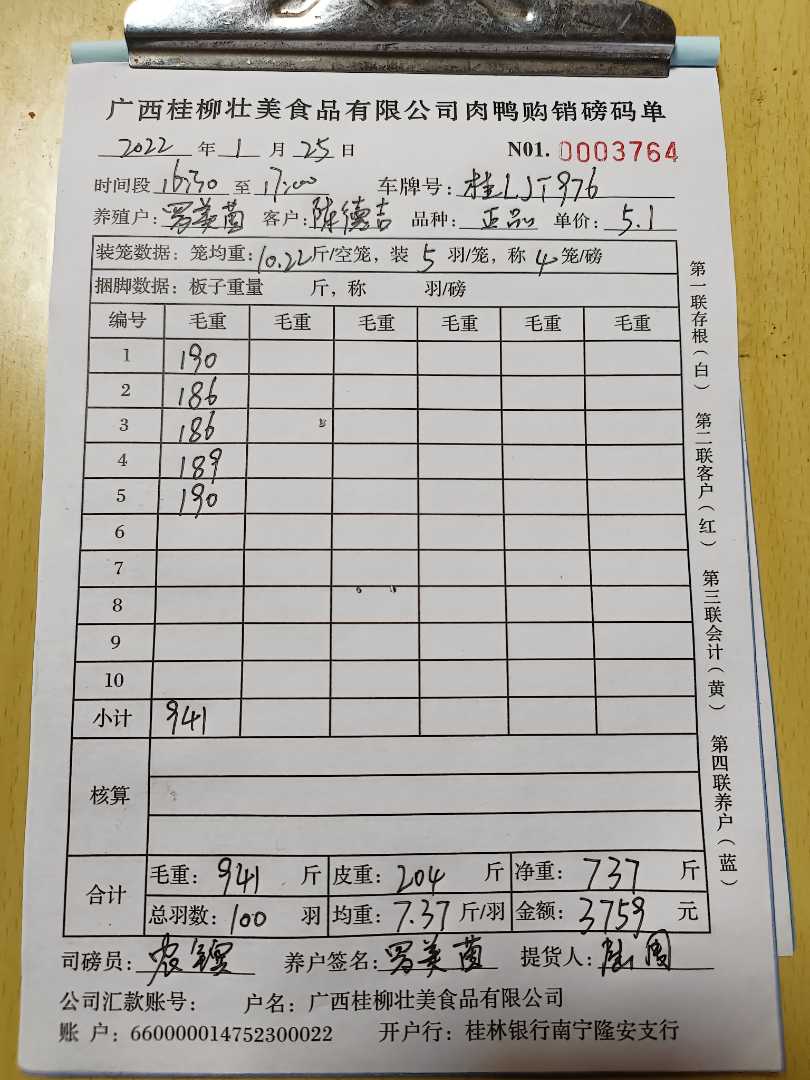 广西桂柳壮美食品有限公司肉鸭购销磅码单
2022 年 1 月 25 日 N01. 0003764
时间段 16:30 至 17:00 车牌号: 桂LJT976
养殖户: 罗美茵 客户: 陈德吉 品种: 正品 单价: 5.1
装笼数据: 笼均重: 10.22 斤/空笼, 装 5 羽/笼, 称 4 笼/磅
捆脚数据: 板子重量 斤, 称 羽/磅
编号 毛重 毛重 毛重 毛重 毛重 毛重
1 190
2 186
3 186
4 189
5 190
6
7
8
9
10
小计 941
核算
合计 毛重: 941 斤 皮重: 204 斤 净重: 737 斤
总羽数: 100 羽 均重: 7.37 斤/羽 金额: 3759 元
司磅员: 养户签名: 罗美茵 提货人:
公司汇款账号: 户名: 广西桂柳壮美食品有限公司
账 户: 660000014752300022 开户行: 桂林银行南宁隆安支行
第一联存根(白) 第二联客户(红) 第三联会计(黄) 第四联养户(蓝)